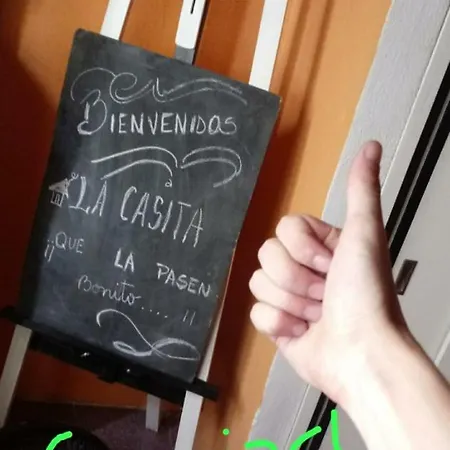 BIENVENIDOS
a
LA CASITA
¡¡QUE LA PASEN
Bonito.....!!